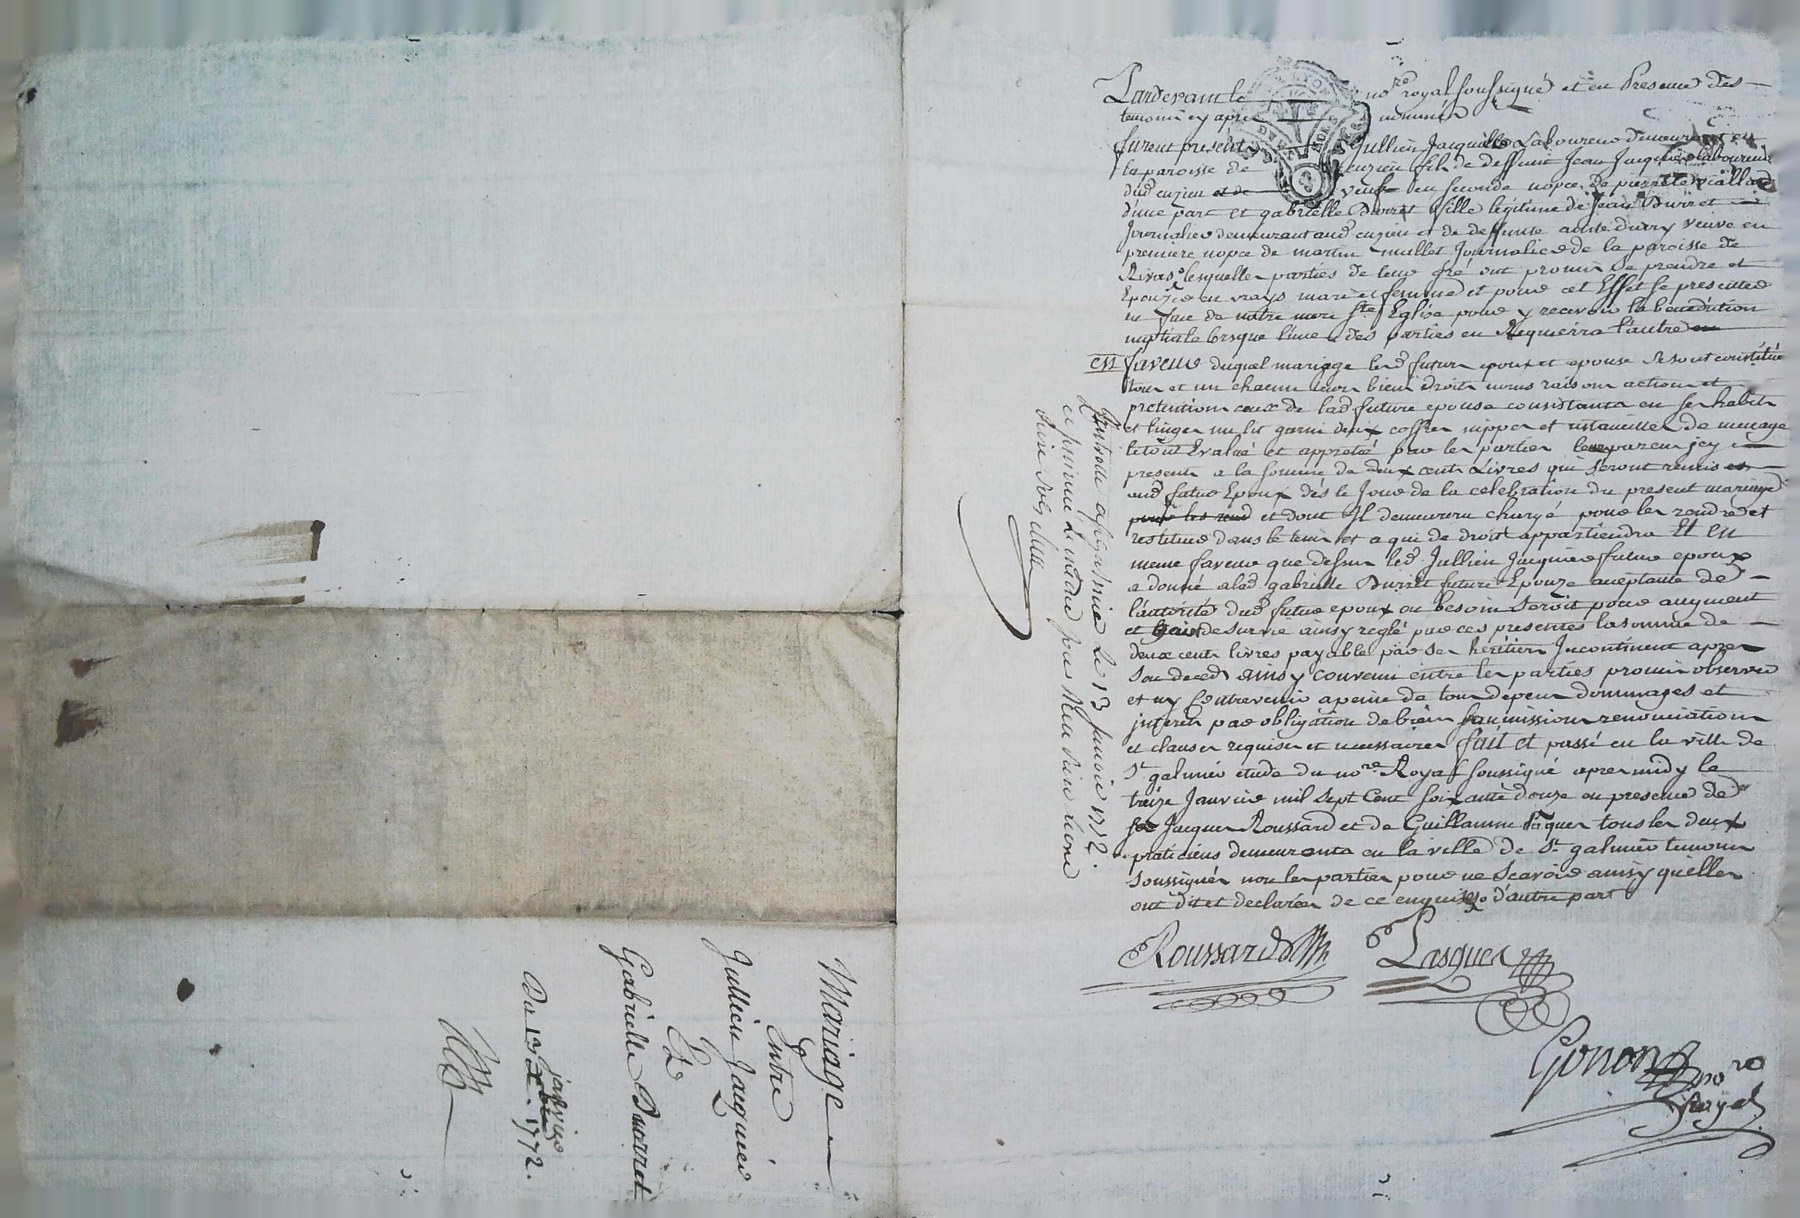 Pardevant le no.re royal soussigné et en Presence des
temoins cy apres nommés
furent presents Jullien Jacquier Laboureur demeurant en
la paroisse de cuzieu fils de deffunt Jean Jacquier laboureur
dud cuzieu et de veuf en seconde nopce de pierrette viallard
d'une part et gabrielle Durret fille légitime de Jean Durret
Journalier demeurant aud cuzieu et de deffunte veuve en
premiere nopce de martin mullet Journalier de la paroisse de
Rivas lesquelles parties de leur gré ont promis se prendre et
Epouzer en vrays mari et femme et pour cet Effet se presenter
en face de notre mere Ste Eglise pour y recevoir la benediction
nuptiale lorsque l'une des parties en Requierra l'autre
en faveur duquel mariage lesd futurs epoux et epouse se sont constitué
tous et un chacun leurs biens droits noms raisons actions et
pretentions ceux de lad future epouse consistants en ses habits
et linges un lit garni deux coffres nippes et ustancilles de menage
le tout Evalué et apprétié par les parties
presents a la somme de deux cents Livres qui seront remis
aud futur Epoux dés le Jour de la celebration du present mariage
pour les rend et dont Il demeurera chargé pour les rendre et
restituer dans le tems et a qui de droit appartiendra Et en
meme faveur que dessus led Jullien Jacquier futur epoux
a donné a lad gabrielle Durret future Epouze aceptante de
l'autorité dud futur epoux ou besoin seroit pour augment
et gain de survie ainsy reglé par ces presentes la somme de
deux cents livres payable par ses héritiers Incontinent apres
son deced ainsy convenu entre les parties promis observer
et ny Contrevenir a peine de tous depens dommages et
interets par obligation de biens soumissions renonciations
et clauses requises et necessaires fait et passé en la ville de
St galmier etude du no.re Royal soussigné apres midy le
treize Janvier mil sept Cent soixante douze en presence de
Jacques Roussard et de Guillaume tous les deux
praticiens demeurants en la ville de St galmier temoins
soussignés non les parties pour ne Scavoir ainsy quelles
ont dit et declarées de ce enquises d'autre part
Roussard Lasgues
Gonon no.re
royal
Controllé a St galmier le 13 Janvier 1772.
Mariage
Entre
Jullien Jacquier
Et
Gabrielle Durret
Du 13 janvier
1772.